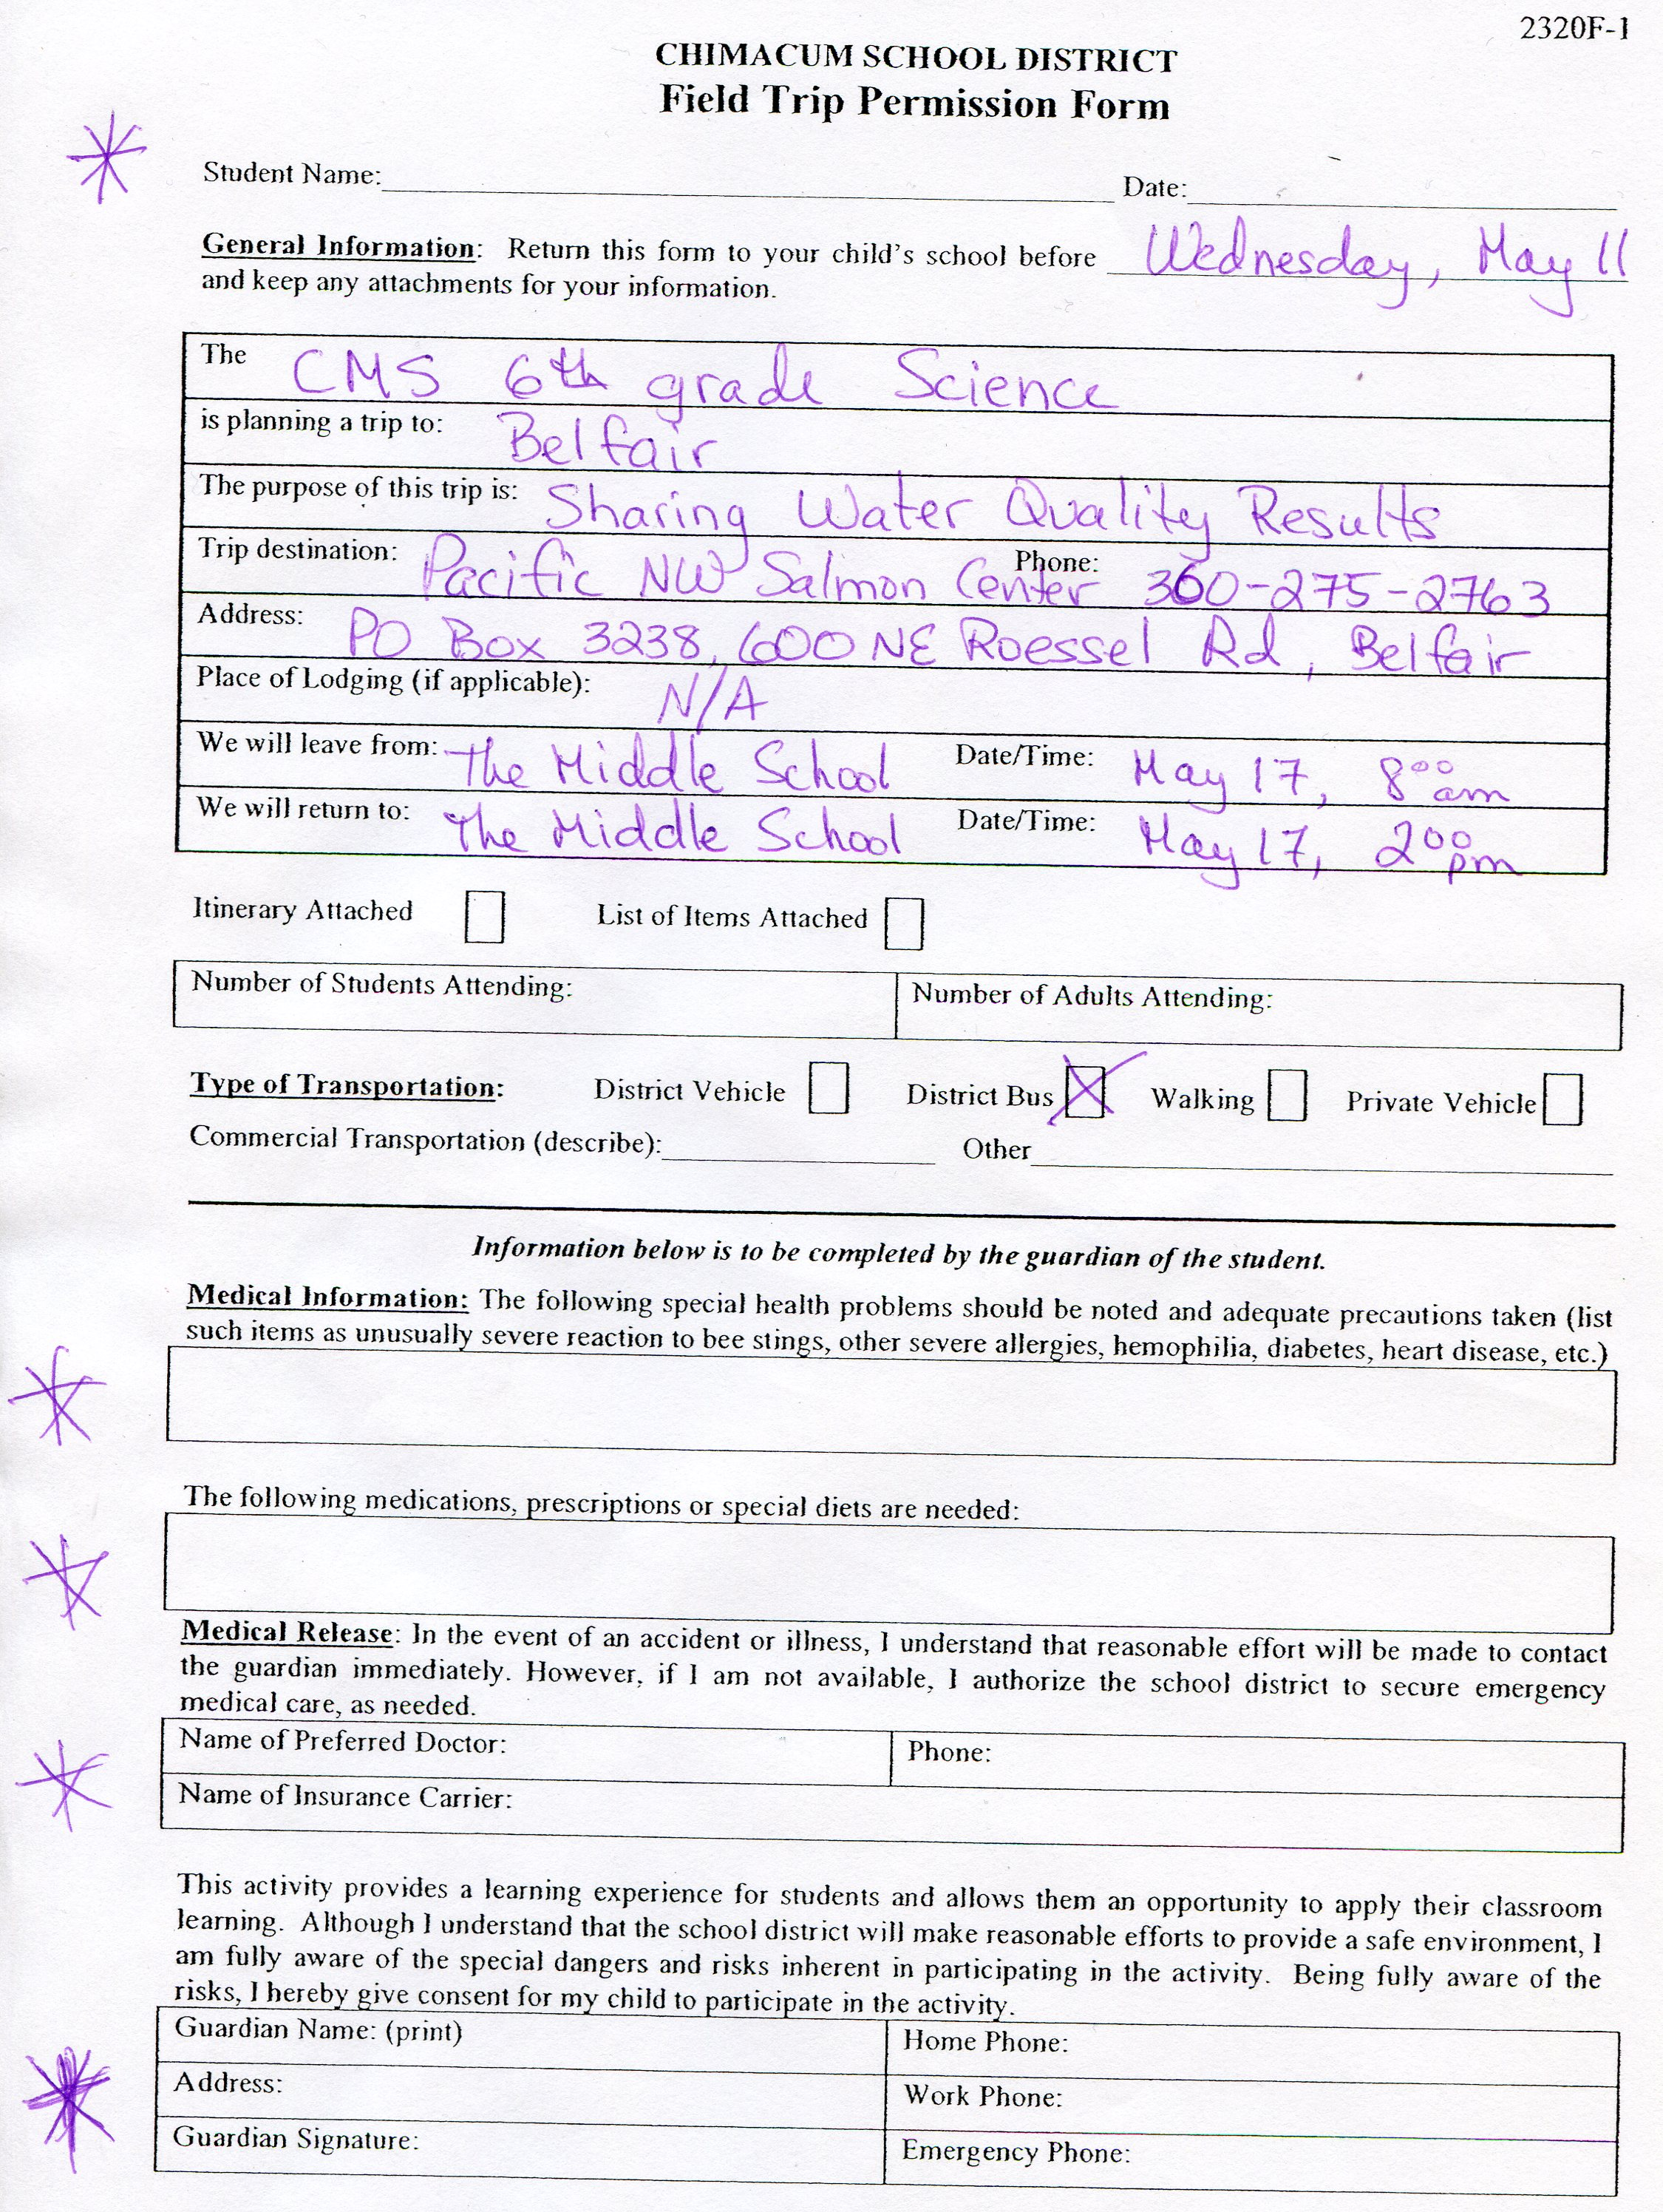 2320F-1
CHIMACUM SCHOOL DISTRICT
Field Trip Permission Form
Student Name: Date:
General Information: Return this form to your child's school before Wednesday, May 11
and keep any attachments for your information.
The CMS 6th grade Science
is planning a trip to: Belfair
The purpose of this trip is: Sharing Water Quality Results
Trip destination: Pacific NW Salmon Center Phone: 360-275-2763
Address: PO Box 3238, 600 NE Roessel Rd, Belfair
Place of Lodging (if applicable): N/A
We will leave from: The Middle School Date/Time: May 17, 8:00 am
We will return to: The Middle School Date/Time: May 17, 2:00 pm
Itinerary Attached List of Items Attached
Number of Students Attending: Number of Adults Attending:
Type of Transportation: District Vehicle District Bus X Walking Private Vehicle
Commercial Transportation (describe): Other
Information below is to be completed by the guardian of the student.
Medical Information: The following special health problems should be noted and adequate precautions taken (list
such items as unusually severe reaction to bee stings, other severe allergies, hemophilia, diabetes, heart disease, etc.)
The following medications, prescriptions or special diets are needed:
Medical Release: In the event of an accident or illness, I understand that reasonable effort will be made to contact
the guardian immediately. However, if I am not available, I authorize the school district to secure emergency
medical care, as needed.
Name of Preferred Doctor: Phone:
Name of Insurance Carrier:
This activity provides a learning experience for students and allows them an opportunity to apply their classroom
learning. Although I understand that the school district will make reasonable efforts to provide a safe environment, I
am fully aware of the special dangers and risks inherent in participating in the activity. Being fully aware of the
risks, I hereby give consent for my child to participate in the activity.
Guardian Name: (print) Home Phone:
Address: Work Phone:
Guardian Signature: Emergency Phone: